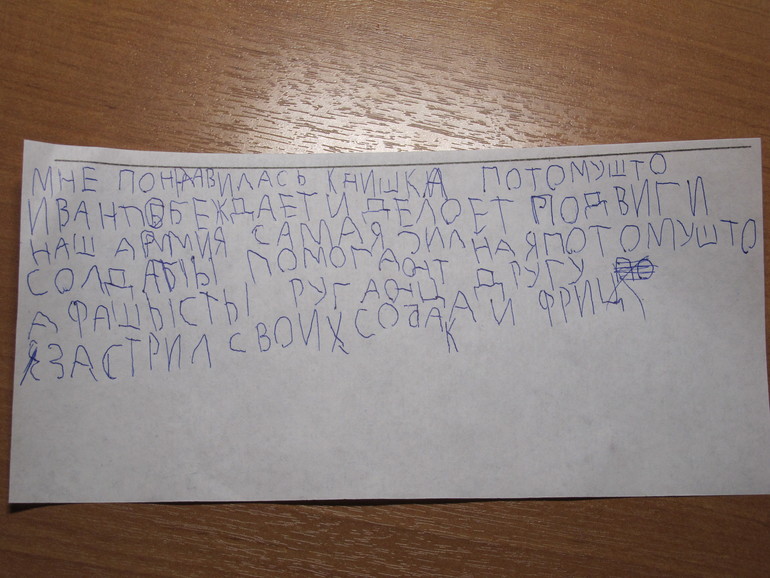 МНЕ ПОНРАВИЛАСЬ КНИШКА ПОТОМУШТО
ИВАН ПОБЕЖДАЕТ И ДЕЛОЕТ ПОДВИГИ
НАШ АРМИЯ САМАЯ СИЛНАЯ ПОТОМУШТО
СОЛДАТЫ ПОМОГАЮТ ДРУГУ
А ФАШЫСТЫ РУГАЮЦА И ФРИЦ
ЗАСТРИЛ СВОИХ СОБАК